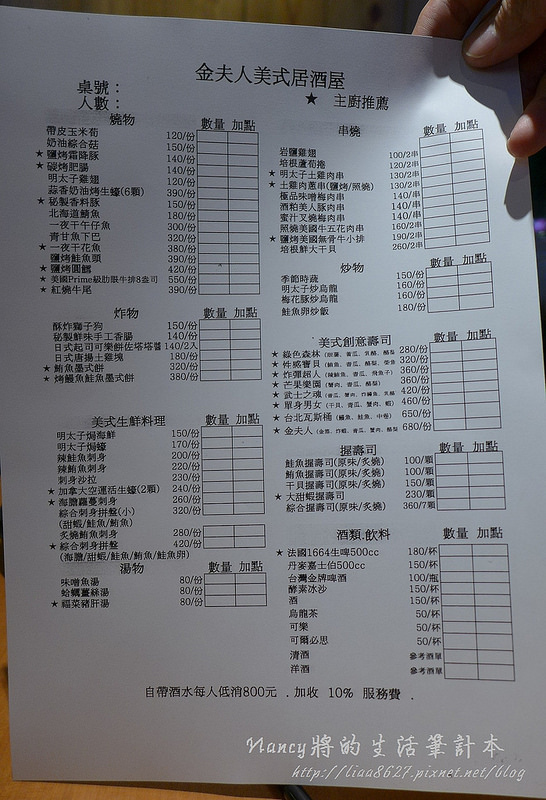 金夫人美式居酒屋
桌號：
人數：
★ 主廚推薦
燒物 數量 加點
帶皮玉米荀 120/份
奶油綜合菇 150/份
★鹽烤霜降豚 140/份
★碳烤肥腸 140/份
明太子雞翅 120/份
蒜香奶油烤生蠔(6顆) 390/份
★秘製香料豚 150/份
北海道鯖魚 180/份
一夜干午仔魚 300/份
青甘魚下巴 320/份
★一夜干花魚 380/份
鹽烤鮭魚頭 390/份
★鹽烤圓鱈 420/份
★美國Prime級肋眼牛排8盎司 550/份
★紅燒牛尾 390/份
炸物 數量 加點
酥炸獅子狗 150/份
秘製鮮味手工香腸 140/份
日式起司可樂餅佐塔塔醬 140/2入
日式唐揚土雞塊 180/份
★鮪魚墨式餅 320/份
★烤鰻魚鮭魚墨式餅 380/份
美式生鮮料理 數量 加點
明太子焗海鮮 150/份
明太子焗蠔 170/份
辣鮭魚刺身 200/份
辣鮪魚刺身 220/份
刺身沙拉 230/份
★加拿大空運活生蠔(2顆) 240/份
★海膽蘿蔓刺身 260/份
綜合刺身拼盤(小) 320/份
(甜蝦/鮭魚/鮪魚)
炙燒鮪魚刺身 280/份
★綜合刺身拼盤 420/份
(海膽/甜蝦/鮭魚/鮪魚/鮭魚卵)
湯物 數量 加點
味噌魚湯 80/份
蛤蠣薑絲湯 80/份
★福菜豬肝湯 80/份
串燒 數量 加點
岩鹽雞翅 100/2串
培根蘆荀捲 120/2串
★明太子土雞肉串 130/2串
★土雞肉蔥串(鹽烤/照燒) 130/2串
極品味噌梅肉串 140/串
酒粕美人豚肉串 140/串
蜜汁叉燒梅肉串 140/串
照燒美國牛五花肉串 160/2串
★鹽烤美國無骨牛小排 190/2串
培根鮮大干貝 260/2串
炒物 數量 加點
季節時蔬 150/份
明太子炒烏龍 160/份
梅花豚炒烏龍 160/份
鮭魚卵炒飯 180/份
美式創意壽司 數量 加點
★綠色森林 280/份
★性感寶貝 320/份
★炸彈超人 360/份
★芒果樂園 360/份
★武士之魂 420/份
★單身男女 460/份
★台北瓦斯桶 650/份
★金夫人 680/份
握壽司 數量 加點
鮭魚握壽司(原味/炙燒) 100/顆
鮪魚握壽司(原味/炙燒) 100/顆
干貝握壽司(原味/炙燒) 150/顆
★大甜蝦握壽司 230/顆
綜合握壽司(原味/炙燒) 360/7顆
酒類.飲料 數量 加點
★法國1664生啤500cc 180/杯
丹麥嘉士伯500cc 150/杯
台灣金牌啤酒 100/瓶
酵素冰沙 150/杯
酒 150/杯
烏龍茶 50/杯
可樂 50/杯
可爾必思 50/杯
清酒 參考酒單
洋酒 參考酒單
自帶酒水每人低消800元 .加收 10% 服務費 .
Nancy將的生活筆計本
http://liaa8627.pixnet.net/blog